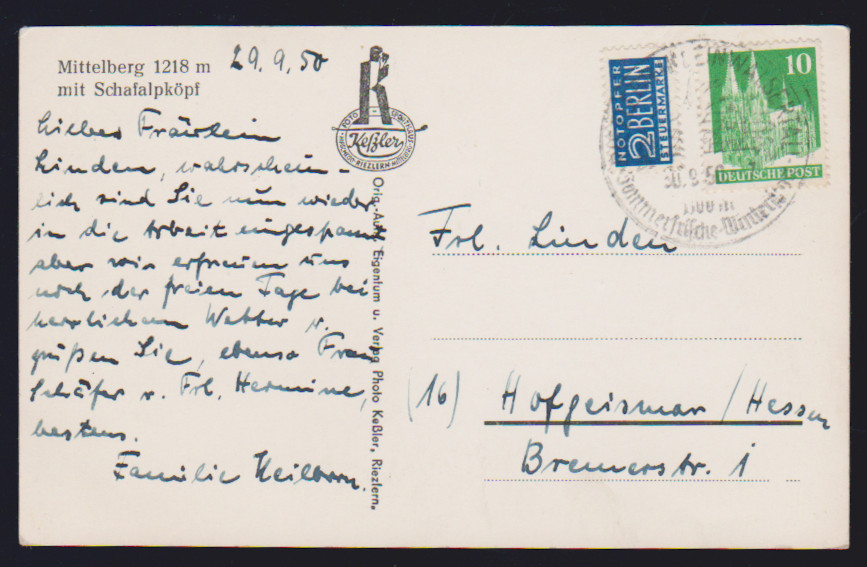 Mittelberg 1218 m
mit Schafalpköpf
29.9.50
Liebes Fräulein
Linden, wahrschein-
lich sind Sie nun wieder
in die Arbeit eingespannt
aber wir erfreuen uns
noch der freien Tage bei
herrlichem Wetter u.
grüßen Sie, ebenso Frau
Schäfer u. Frl. Hermine,
bestens.
Familie Heilborn.
Keßler
Orig.-Aufn. Eigentum u. Verlag Photo Keßler, Riezlern.
NOTOPFER
2 BERLIN
STEUERMARKE
10
DEUTSCHE POST
30.9.50
1100 m
Sommerfrische-Wintersp
Frl. Linden
(16) Hofgeismar/Hessen
Bremerstr. 1